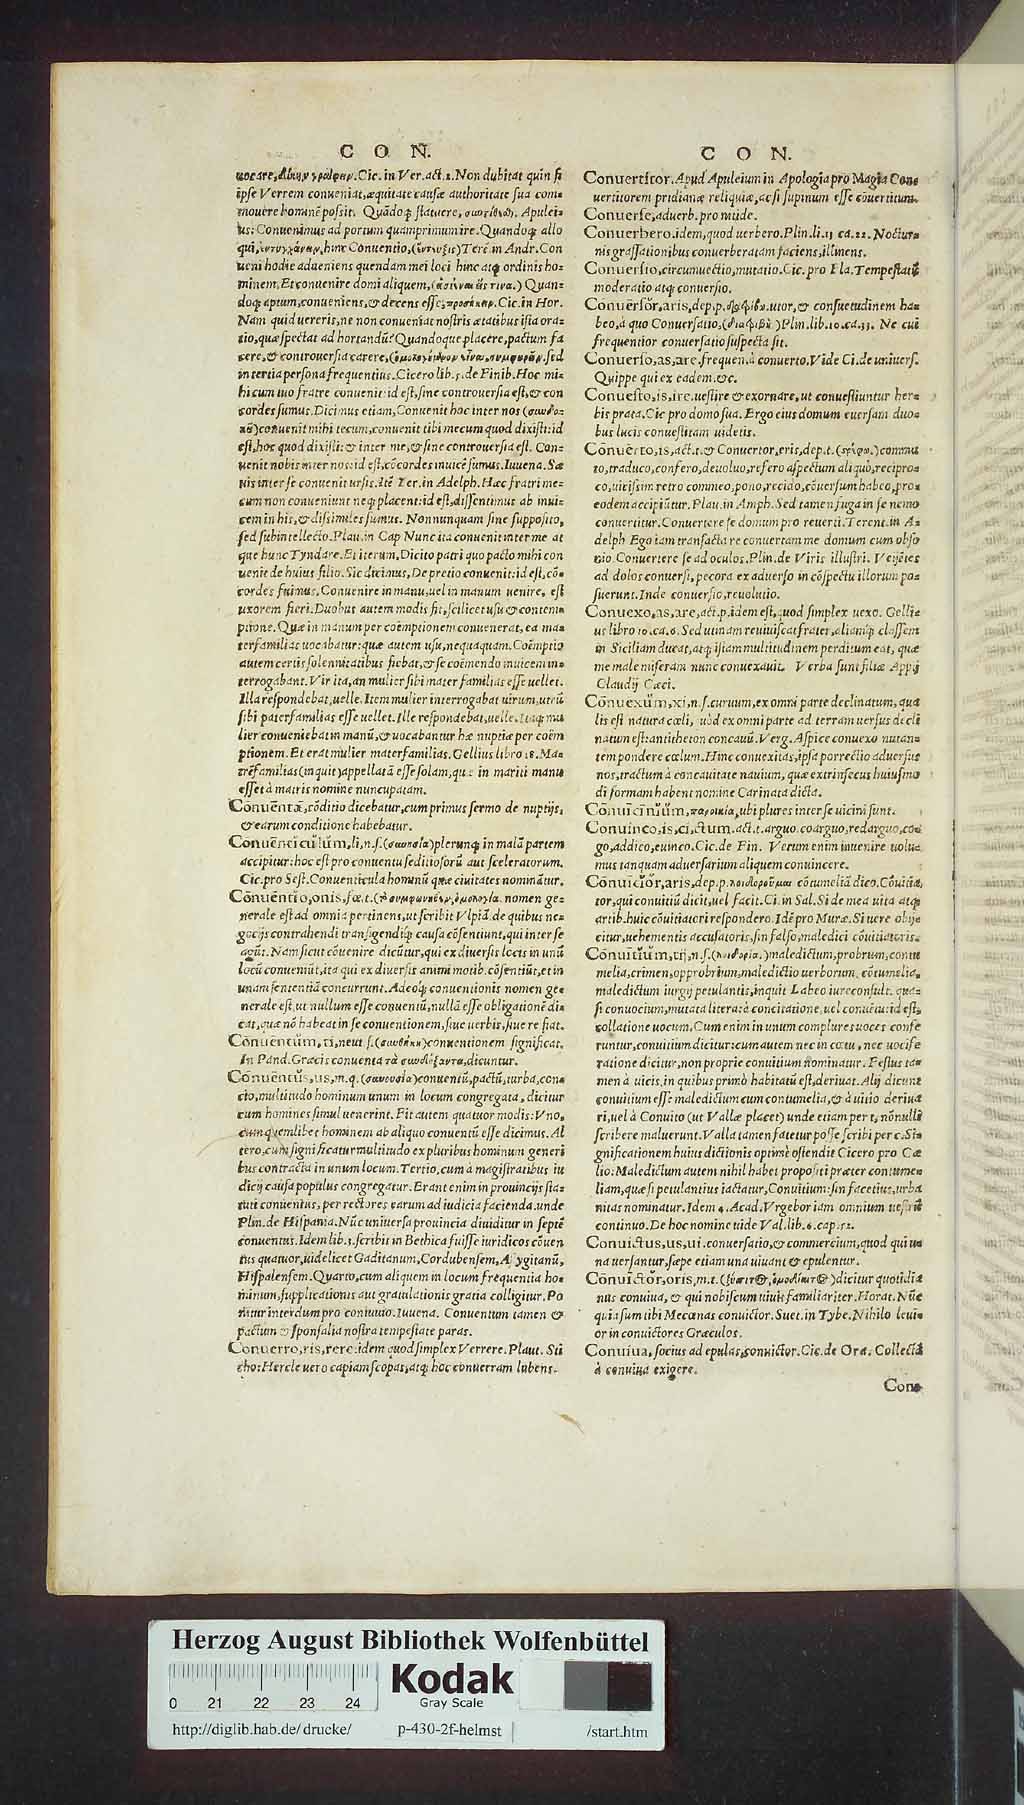 C O N.
uocare, δίκην γράφειν. Cic. in Ver. act. 2. Non dubitat quin si
ipse Verrem conueniat, æquitate causæ authoritate sua com-
mouere hominē possit. Quādoq́ statuere, συντίθεσθαι. Apulei-
us: Conuenimus ad portum quamprimum ire. Quandoq́ allo
qui, hinc Conuentio, Terē in Andr. Con
ueni hodie adueniens quendam mei loci hinc atq́ ordinis ho-
minem. Et conuenire domi aliquem, Quan-
doq́ aptum, conueniens, & decens esse, προσήκειν. Cic. in Hor.
Nam quid uereris, ne non conueniat nostris ætatibus ista ora-
tio, quæ spectat ad hortandū? Quandoque placere, pactum fa
cere, & controuersia carere, sed
in tertia persona frequentius. Cicero lib. 5. de Finib. Hoc mi-
hi cum tuo fratre conuenit: id est, sine controuersia est, & con
cordes sumus. Dicimus etiam, Conuenit hoc inter nos
conuenit mihi tecum, conuenit tibi mecum quod dixisti: id
est, hoc quod dixisti: & inter me, & sine controuersia est. Con-
uenit nobis inter nos: id est, cōcordes inuicē sumus. Iuuena. Sæ
uis inter se conuenit ursis. Itē Ter. in Adelph. Hæc fratri me-
cum non conueniunt neq́ placent: id est, dissentimus ab inui-
cem in his, & dissimiles sumus. Nonnunquam sine supposito,
sed subintellecto. Plau. in Cap Nunc ita conuenit inter me at
que hunc Tyndare. Et iterum, Dicito patri quo pacto mihi con
uenit de huius filio. Sic dicimus, De pretio conuenit: id est, cō-
cordes fuimus. Conuenire in manū, uel in manum uenire, est
uxorem fieri. Duobus autem modis fit, scilicet usu & contem
ptione. Quæ in manum per coēmptionem conuenerat, ea ma-
terfamilias uocabatur: quæ autem usu, nequaquam. Coēmptio
autem certis solennitatibus fiebat, & se coēmendo inuicem in-
terrogabant. Vir ita, an mulier sibi mater familias esse uellet.
Illa respondebat, uelle. Item mulier interrogabat uirum, utrū
sibi paterfamilias esse uellet. Ille respondebat, uelle. Itaq́ mu
lier conueniebat in manū, & uocabantur hæ nuptiæ per coēm
ptionem. Et erat mulier materfamilias. Gellius libro 18. Ma-
trēfamilias (inquit) appellatā esse solam, quæ in mariti manu
esset à matris nomine nuncupatam.
Conuentæ, cōditio dicebatur, cum primus sermo de nuptijs,
& earum conditione habebatur.
Conuenticulum, li, n. s. (συνουσία) plerunq́ in malā partem
accipitur: hoc est pro conuentu seditiosorū aut sceleratorum.
Cic. pro Sest. Conuenticula hominū quæ ciuitates nominātur.
Conuentio, onis, fœ. t. nomen ge-
nerale est ad omnia pertinens, ut scribit Vlpiā. de quibus ne-
gocijs contrahendi transigendiq́ causa cōsentiunt, qui inter se
agūt. Nam sicut cōuenire dicūtur, qui ex diuersis locis in unū
locū conueniūt, ita qui ex diuersis animi motib. cōsentiūt, et in
unam sententiā concurrunt. Adeoq́ conuentionis nomen ge-
nerale est, ut nullum esse conuentū, nullā esse obligationē di-
cat, quæ nō habeat in se conuentionem, siue uerbis, siue re fiat.
Conuentum, ti, neut s. (συνθήκη) conuentionem significat.
In Pand. Græcis conuenta τὰ συνδόξαντα, dicuntur.
Conuentus, us, m. q. (συνουσία) conuentū, pactū, turba, con-
cio, multitudo hominum unum in locum congregata, dicitur
cum homines simul uenerint. Fit autem quatuor modis: Vno,
cum quemlibet hominem ab aliquo conuentū esse dicimus. Al
tero, cum significatur multitudo ex pluribus hominum generi
bus contracta in unum locum. Tertio, cum à magistratibus iu
dicij causa populus congregatur. Erant enim in prouincijs sta-
tuti conuentus, per rectores earum ad iudicia facienda. unde
Plin. de Hispania. Nūc uniuersa prouincia diuiditur in septē
conuentus. Idem lib. 3. scribit in Bethica fuisse iuridicos cōuen
tus quatuor, uidelicet Gaditanum, Cordubensem, Astygitanū,
Hispalensem. Quarto, cum aliquem in locum frequentia ho-
minum, supplicationis aut gratulationis gratia colligitur. Po
nitur interdum pro conuiuio. Iuuena. Conuentum tamen &
pactum & sponsalia nostra tempestate paras.
Conuerro, ris, rere: idem quod simplex Verrere. Plaut. Sti
cho: Hercle uero capiam scopas, atq́ hoc conuerram lubens.
C O N.
Conuertitor. Apud Apuleium in Apologia pro Magia Con-
uertitorem pridianæ reliquiæ, ac si supinum esse cōuertitum.
Conuerse, aduerb. pro mūde.
Conuerbero. idem, quod uerbero. Plin. li. 13 ca. 22. Noctur-
nis grassationibus conuerberatam faciens, illinens.
Conuersio, circumuectio, mutatio. Cic. pro Fla. Tempestatis
moderatio atq́ conuersio.
Conuersor, aris, dep. p. διατρίβω. utor, & consuetudinem ha-
beo, à quo Conuersatio, (διατριβὴ) Plin. lib. 10. ca. 33. Ne cui
frequentior conuersatio suspecta sit.
Conuerso, as, are, frequen. à conuerto. Vide Ci. de uniuers.
Quippe qui ex eadem. &c.
Conuestio, is, ire. uestire & exornare, ut conuestiuntur her-
bis prata. Cic pro domo sua. Ergo eius domum euersam duo-
bus lucis conuestitam uidetis.
Conuerto, is, act. t. & Conuertor, eris, dep. t. (στρέφω.) commu
to, traduco, confero, deuoluo, refero aspectum aliquò, recipro-
co, uicissim retro commeo, pono, recido, cōuersum habeo, pro-
eodem accipiūtur. Plau. in Amph. Sed tamen fuga in se nemo
conuertitur. Conuertere se domum pro reuerti. Terent. in A-
delph Ego iam transacta re conuertam me domum cum obso
nio. Conuertere se ad oculos. Plin. de Viris illustri. Veijētes
ad dolos conuersi, pecora ex aduerso in cōspectu illorum po-
suerunt. Inde conuersio, reuolutio.
Conuexo, as, are, act. p. idem est, quod simplex uexo. Gelli-
us libro 10. ca. 6. Sed utinam reuiuiscat frater, aliamq́ classem
in Siciliam ducat, atq́ istam multitudinem perditum eat, quæ
me male miseram nunc conuexauit. Verba sunt filiæ Appij
Claudij Cæci.
Conuexum, xi, n. s. curuum, ex omni parte declinatum, qua
lis est natura cœli, quòd ex omni parte ad terram uersus decli
natum est: antitheton concauū. Verg. Aspice conuexo nutan-
tem pondere cœlum. Hinc conuexitas, ipsa porrectio aduersus
nos, tractum à concauitate nauium, quæ extrinsecus huiusmo
di formam habent nomine Carinata dicta.
Conuicinium, παροικία, ubi plures inter se uicini sunt.
Conuinco, is, ci, ctum. act. t. arguo. coarguo, redarguo, co-
go, addico, euinco. Cic. de Fin. Verum enim inuenire uolu-
mus tanquam aduersarium aliquem conuincere.
Conuicior, aris, dep. p. λοιδοροῦμαι cōtumeliā dico. Cōuitia-
tor, qui conuitiū dicit, uel facit. Ci. in Sal. Si de mea uita atq́
artib. huic cōuitiatori respondero. Idē pro Muræ. Si uere obije
citur, uehementis accusatoris, sin falso, maledici cōuitiatoris.
Conuitium, tij, n. s. (λοιδορία.) maledictum, probrum, contu
melia, crimen, opprobrium, maledictio uerborum, cōtumelia-
maledictum iurgij petulantis, inquit Labeo iureconsult. qua-
si conuocium, mutata litera à concitatione, uel conuētu: id est,
collatione uocum. Cum enim in unum complures uoces confe
runtur, conuitium dicitur: cum autem nec in cœtu, nec uocife
ratione dicitur, non proprie conuitium nominatur. Festus ta-
men à uicis, in quibus primò habitatū est, deriuat. Alij dicunt
conuitium esse maledictum cum contumelia, & à uitio deriua
ri, uel à Conuito (ut Vallæ placet) unde etiam per t, nōnulli
scribere maluerunt. Valla tamen fatetur posse scribi per c. Si-
gnificationem huius dictionis optimè ostendit Cicero pro Cæ
lio: Maledictum autem nihil habet propositi præter contume-
liam, quæ si petulantius iactatur, Conuitium: sin facetius, urba
nitas nominatur. Idem 4. Acad. Vrgebor iam omnium uestrū
continuo. De hoc nomine uide Val. lib. 6. cap. 52.
Conuictus, us, ui. conuersatio, & commercium, quod qui uu
na uersantur, sæpe etiam una uiuunt & epulentur.
Conuictor, oris, m. t. dicitur quotidia
nus conuiua, & qui nobiscum uiuit familiariter. Horat. Nūc
quia sum tibi Mecœnas conuictor. Suet. in Tybe. Nihilo leui-
or in conuictores Græculos.
Conuiua, socius ad epulas, conuictor. Cic. de Ora. Collectā
à conuiua exigere.
Con-
Herzog August Bibliothek Wolfenbüttel
Kodak
Gray Scale
0 21 22 23 24
http://diglib.hab.de/drucke/ p-430-2f-helmst /start.htm